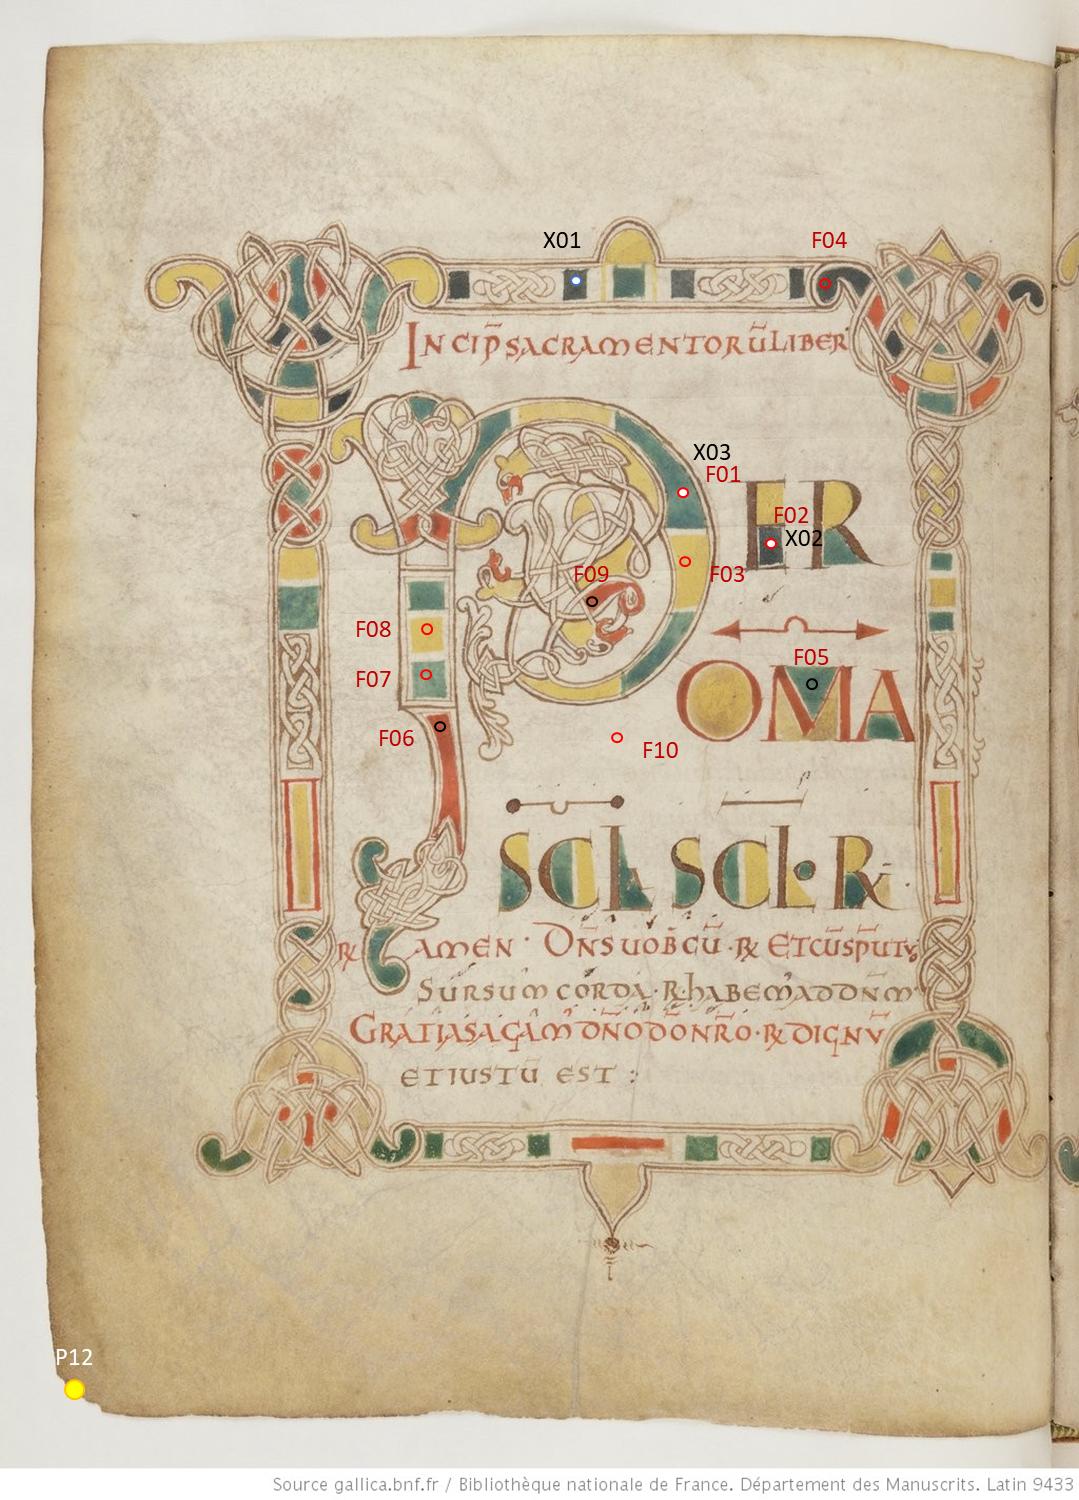 X01
F04
INCIP̄ SACRAMENTORŪ LIBER
X03
F01
PER
F02
X02
F09
F03
F08
F05
F07
OMA
F06
F10
SCLA SCLO R
R̷ AMEN · DN̄S UOBCŪ · R̷ ET CŪ SPŪ TV̄
SURSUM CORDA · R̷ hABEM̄ AD DN̄M
GRATIAS AGAM̄ DN̄O DŌ NR̄O · R̷ DIGNV̄
ET IUSTŪ EST :
P12
Source gallica.bnf.fr / Bibliothèque nationale de France. Département des Manuscrits. Latin 9433